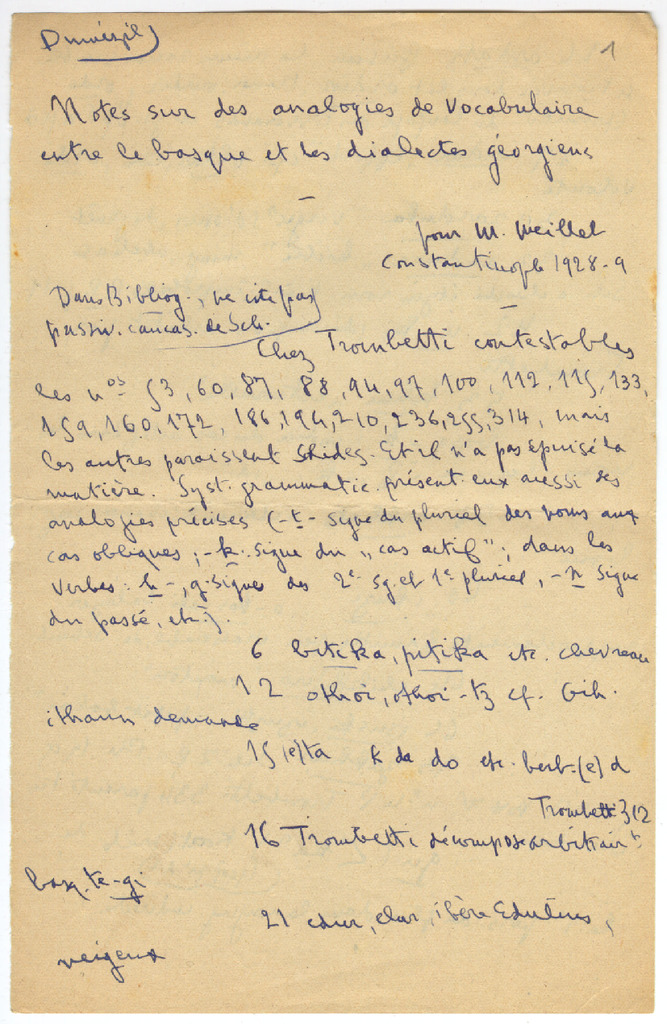 Dumézil
1
Notes sur des analogies de vocabulaire
entre le basque et les dialectes géorgiens
pour M. Meillet
Constantinople 1928-9
Dans Bibliog., ne cite pas
passiv. caucas. de Sch.
Chez Trombetti contestables
les nos 53, 60, 87, 88, 94, 97, 100, 112, 115, 133,
159, 160, 172, 186, 194, 210, 236, 255, 314, mais
les autres paraissent solides. Et il n'a pas épuisé la
matière. Syst. grammatic. présent. eux aussi des
analogies précises (-t- signe du pluriel des noms aux
cas obliques; -k signe du „cas actif”; dans les
verbes: h-, g- signes des 2e sg. et 1e pluriel, -n signe
du passé, etc.).
6 bitika, pitika etc. chevreau
12 othoi, othoi-tz cf.
ithaun demande
15 (e)ta k da do etc. (e)d
Trombetti 312
16 Trombetti décompose arbitrairt
basq. te-gi
21 edur, elur, ibère Edulius,
neigeux